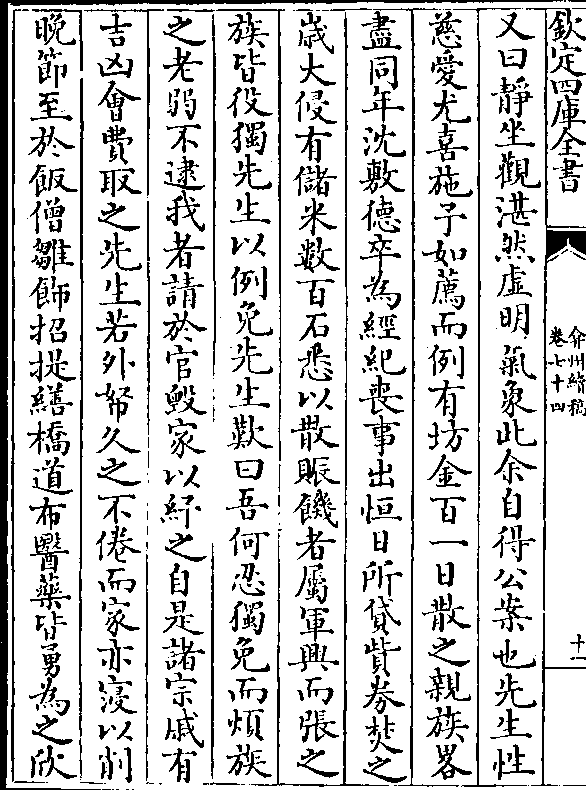 欽定四庫全書
弇州續稿
卷七十四
十一
又曰靜坐觀湛然虛明氣象此余自得公案也先生性
慈愛尤喜施予如薦而例有坊金百一日散之親族畧
盡同年沈敷德卒為經紀喪事出恒日所貸貲券焚之
歲大侵有儲米數百石悉以散賑饑者屬軍興而張之
族皆役獨先生以例免先生歎曰吾何忍獨免而煩族
之老弱不逮我者請於官毀家以紓之自是諸宗戚有
吉凶會費取之先生若外帑久之不倦而家亦寖以削
晚節至於飯僧雛飾招提繕橋道布醫藥皆勇為之欣